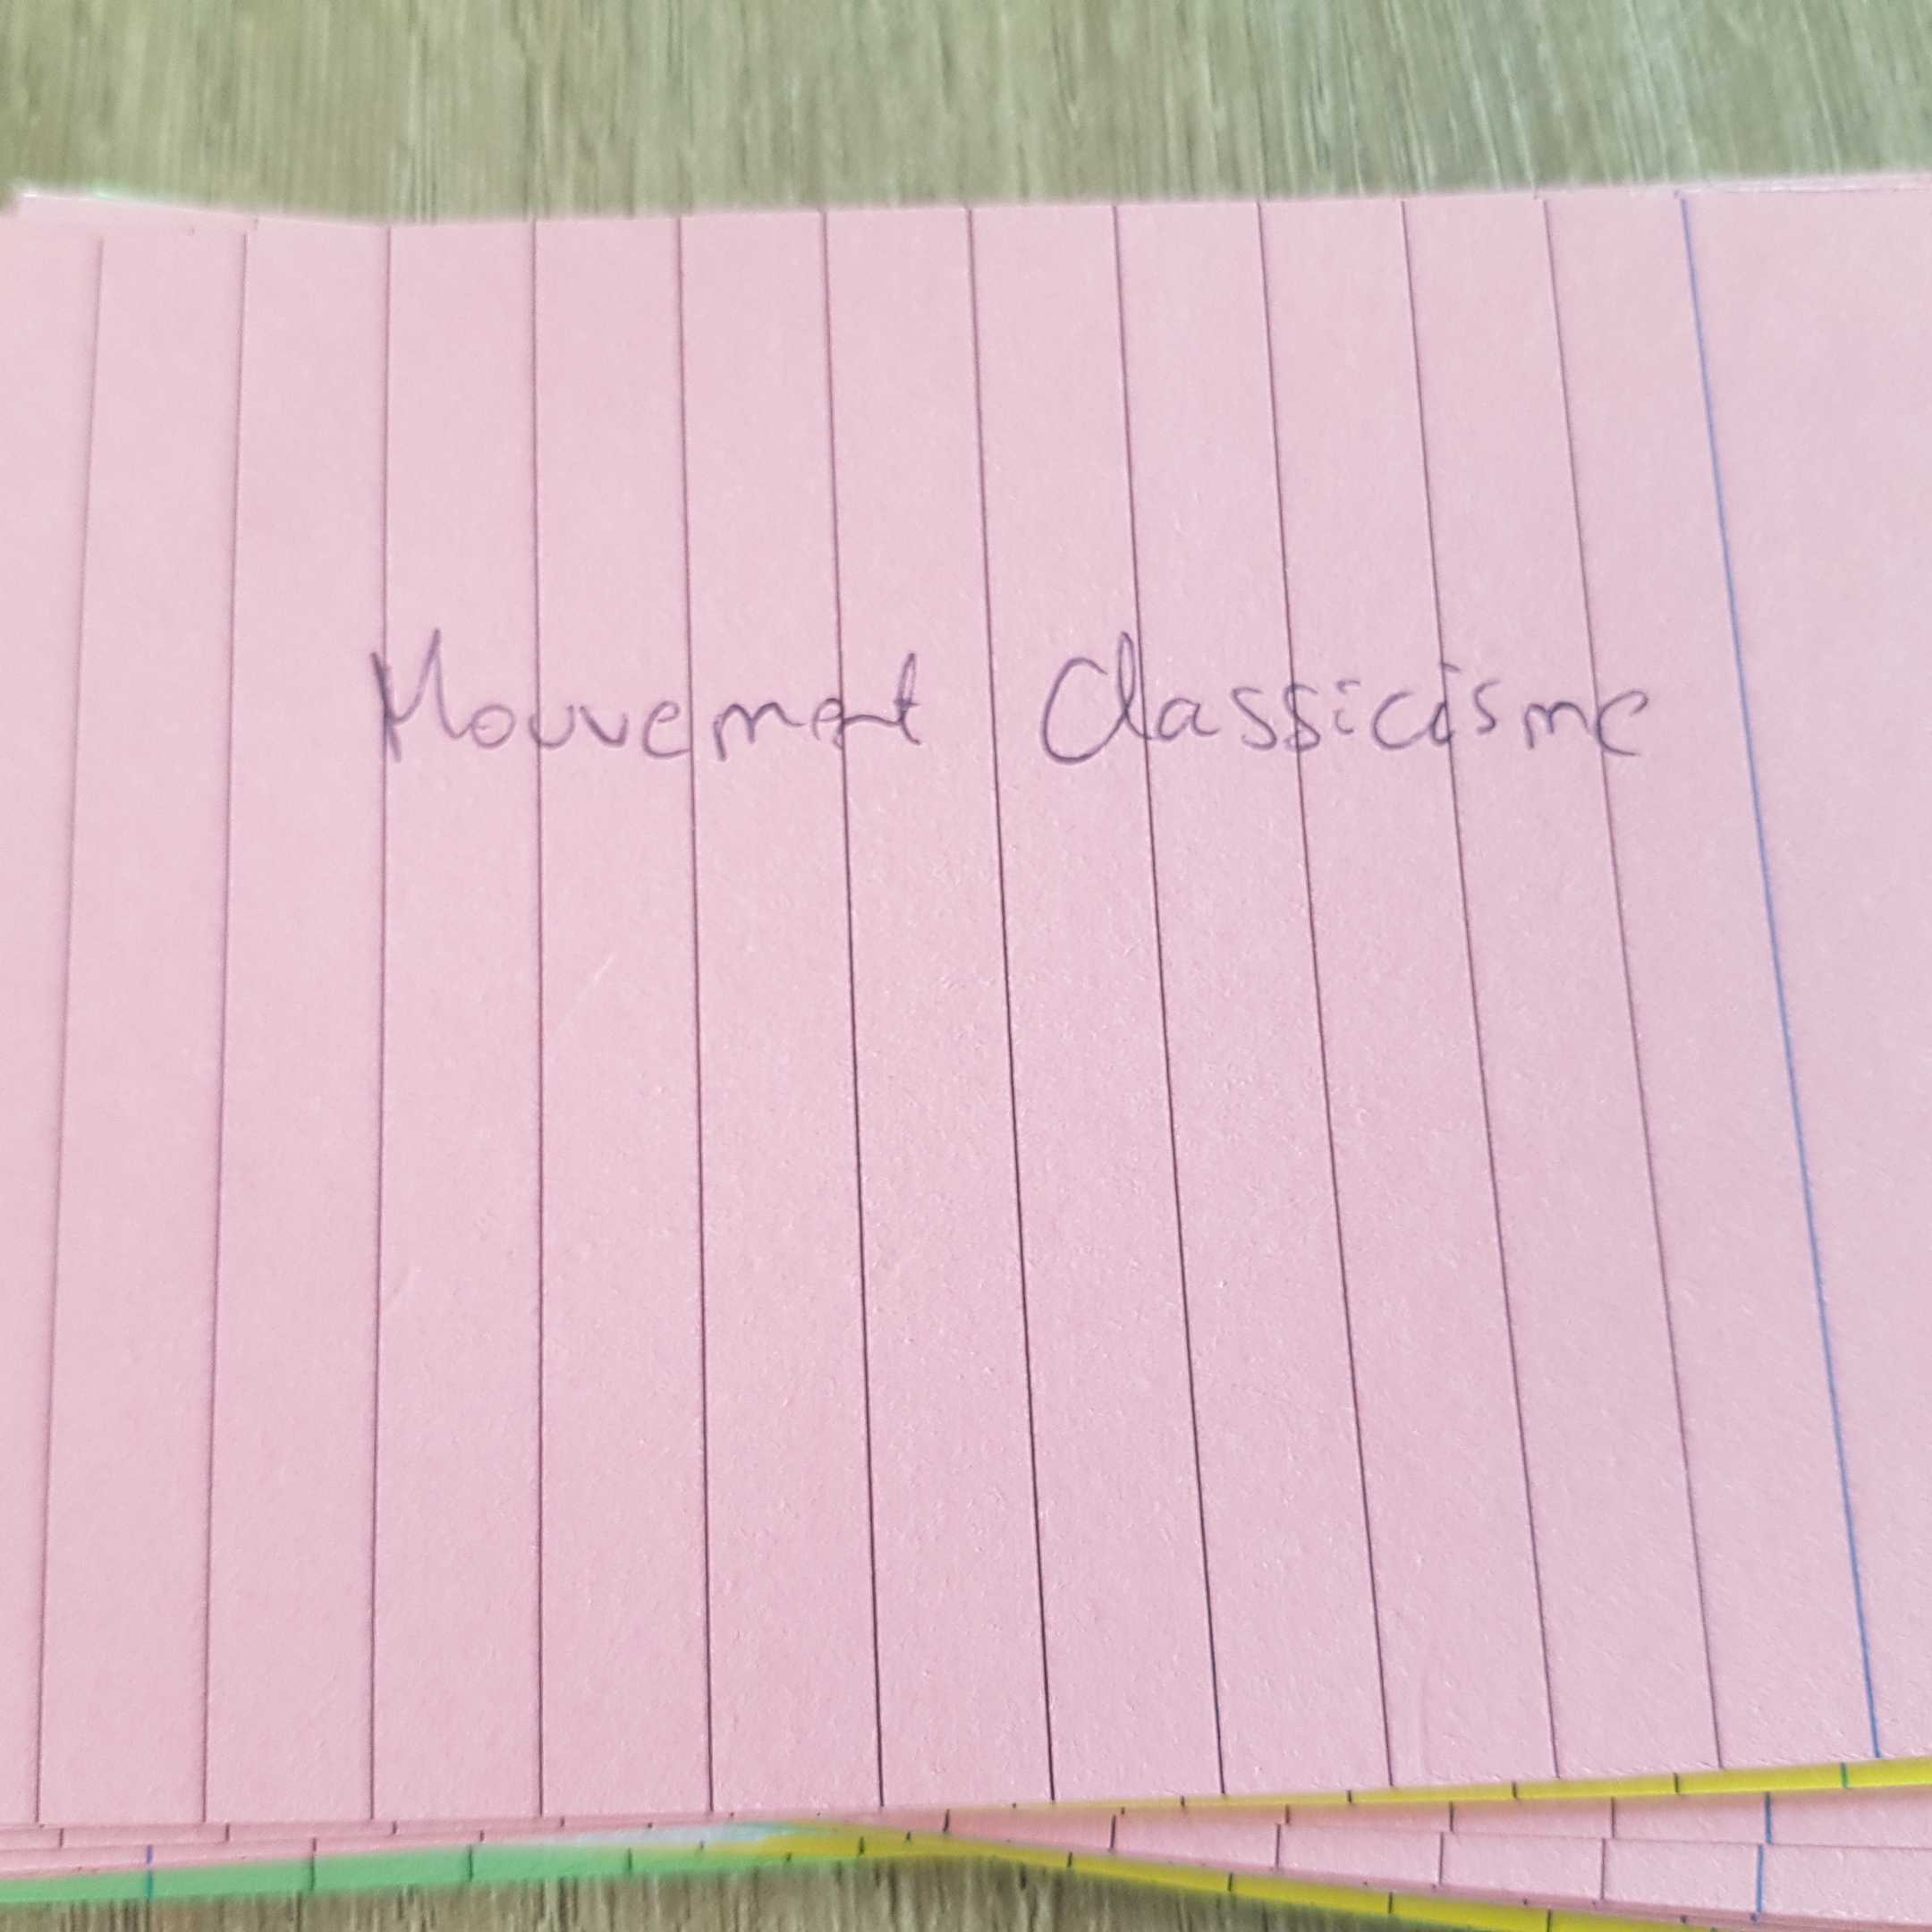 Mouvement Classicisme